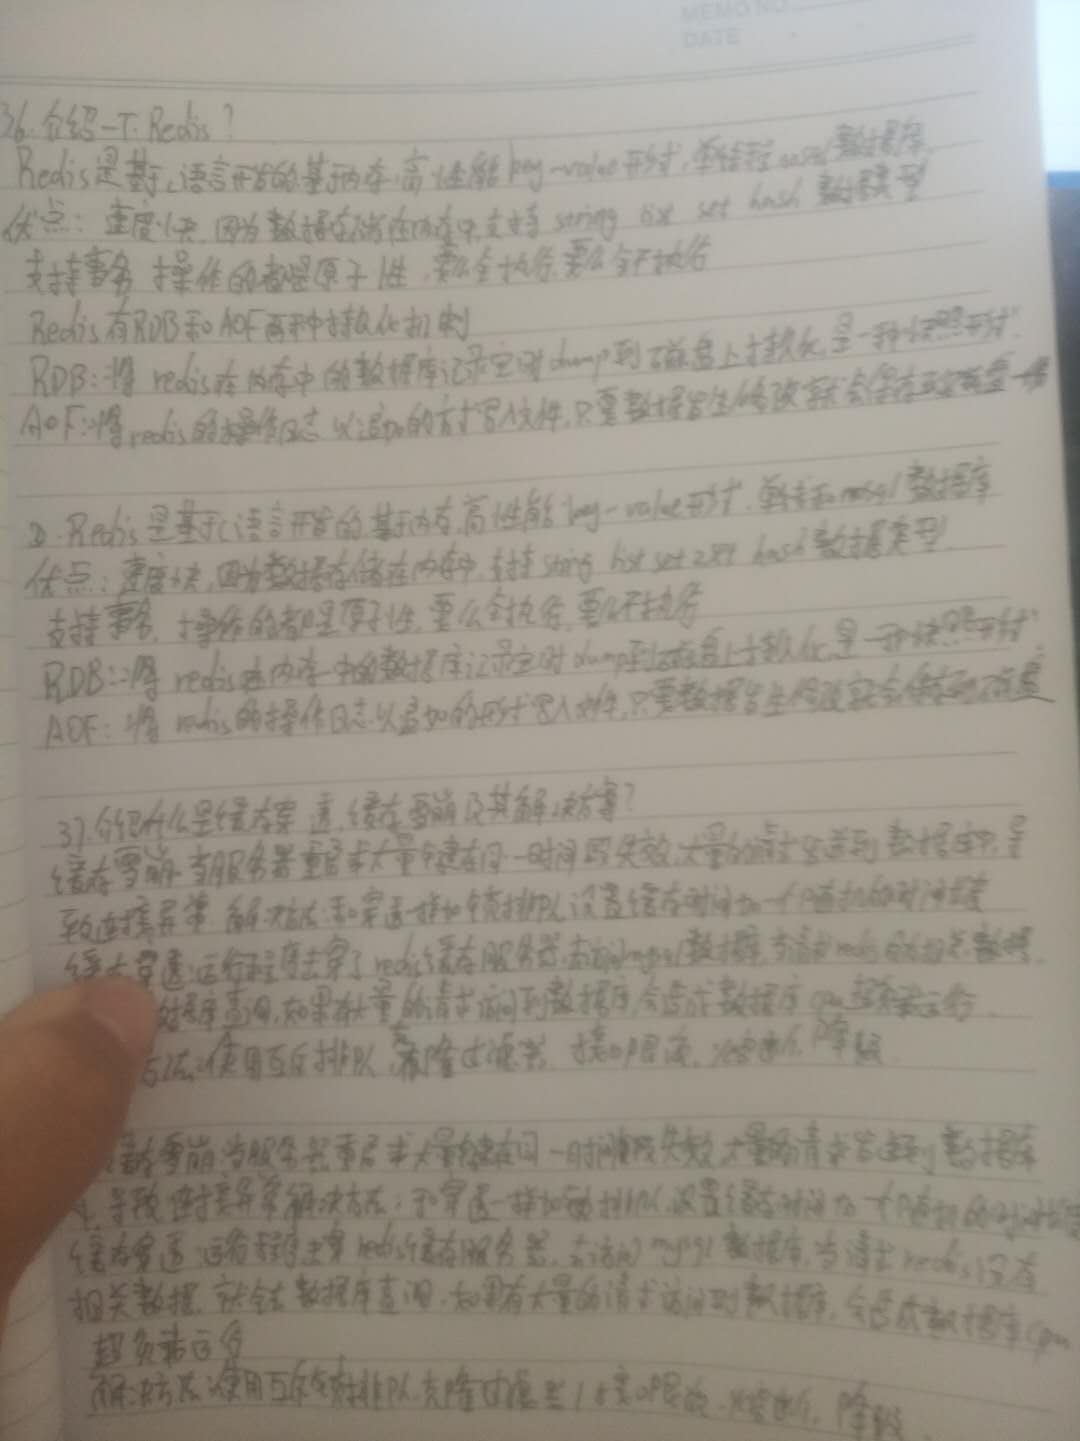 MEMO NO.
DATE
36. 介绍一下 Redis?
Redis是基于c语言开发的基于内存.高性能key-value形式,单线程nosql数据库
优点: 速度快,因为数据存储在内存中,支持 string list set hash 数据类型
支持事务 操作的都是原子性,要么全执行,要么全不执行
Redis有RDB和AOF两种持久化机制
RDB:将 redis在内存中的数据库记录定时dump到磁盘上持久化,是一种快照形式.
AOF:将redis的操作日志以追加的方式写入文件,只要数据发生修改就会保存到磁盘
Redis是基于c语言开发的基于内存,高性能key-value形式,单线程nosql数据库
优点: 速度快,因为数据存储在内存中,支持string list set zset hash数据类型
支持事务,操作的都是原子性,要么全执行,要么不执行
RDB:将 redis在内存中的数据库记录定时dump到磁盘上持久化,是一种快照形式.
AOF:将 redis的操作日志以追加的形式写入文件,只要数据发生修改就会保存到磁盘
37.介绍什么是缓存穿透,缓存雪崩及其解决方案?
缓存雪崩:当服务器重启或大量key在同一时间段失效,大量的请求发送到数据库中,导
致连接异常 解决方法:和穿透一样加锁排队,设置缓存时间加一个随机的时间
缓存穿透:运行程序去穿了redis缓存服务器,去访问mysql数据库,当请求redis 相关数据,
数据库查询,如果有大量的请求访问到数据库,会造成数据库cpu超负载运行
方法:使用互斥排队,布隆过滤器,接口限流,熔断,降级
雪崩:当服务器重启或大量key在同一时间段失效,大量的请求发送到数据库
导致连接异常解决方法:和穿透一样加锁排队,设置缓存时间加一个随机的时间
缓存穿透:运行程序去穿redis缓存服务器,去访问mysql数据库,当请求redis没有
相关数据,就会去数据库查询,如果有大量的请求访问到数据库,会造成数据库cpu
超负载运行
解决方法:使用互斥锁排队,布隆过滤器,接口限流,熔断,降级